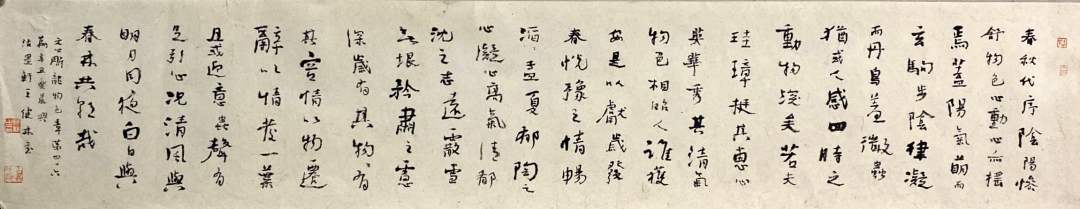 春秋代序陰陽慘
舒物色心動心亦搖
焉蓋陽氣萌而
玄駒步陰律凝
而丹鳥羞微蟲
猶或入感四時之
動物深矣若夫
珪璋挺其惠心
英華秀其清氣
物色相人誰獲
安是以獻歲發
春悅豫之情暢
滔滔孟夏郁陶之
心凝高氣清
沈之志遠霰雪
無垠矜肅之慮
深歲有其物物有
其容情以物遷
辭以情發一葉
且或迎意蟲聲有
足引心況清風與
明月同夜白日與
春林共朝哉
文心雕龍物色章第四十六
辛丑
健林書